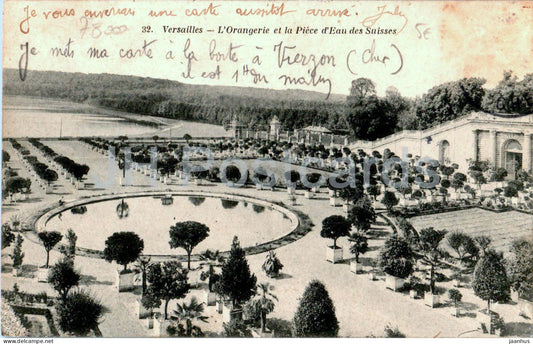 je vous enverrai une carte aussitot arrivé.
32. Versailles — L'Orangerie et la Pièce d'Eau des Suisses
5€
Je mets ma carte à la boîte à Vierzon (Cher)
il est 1h du matin
JH Postcards
www.jaanhus.com